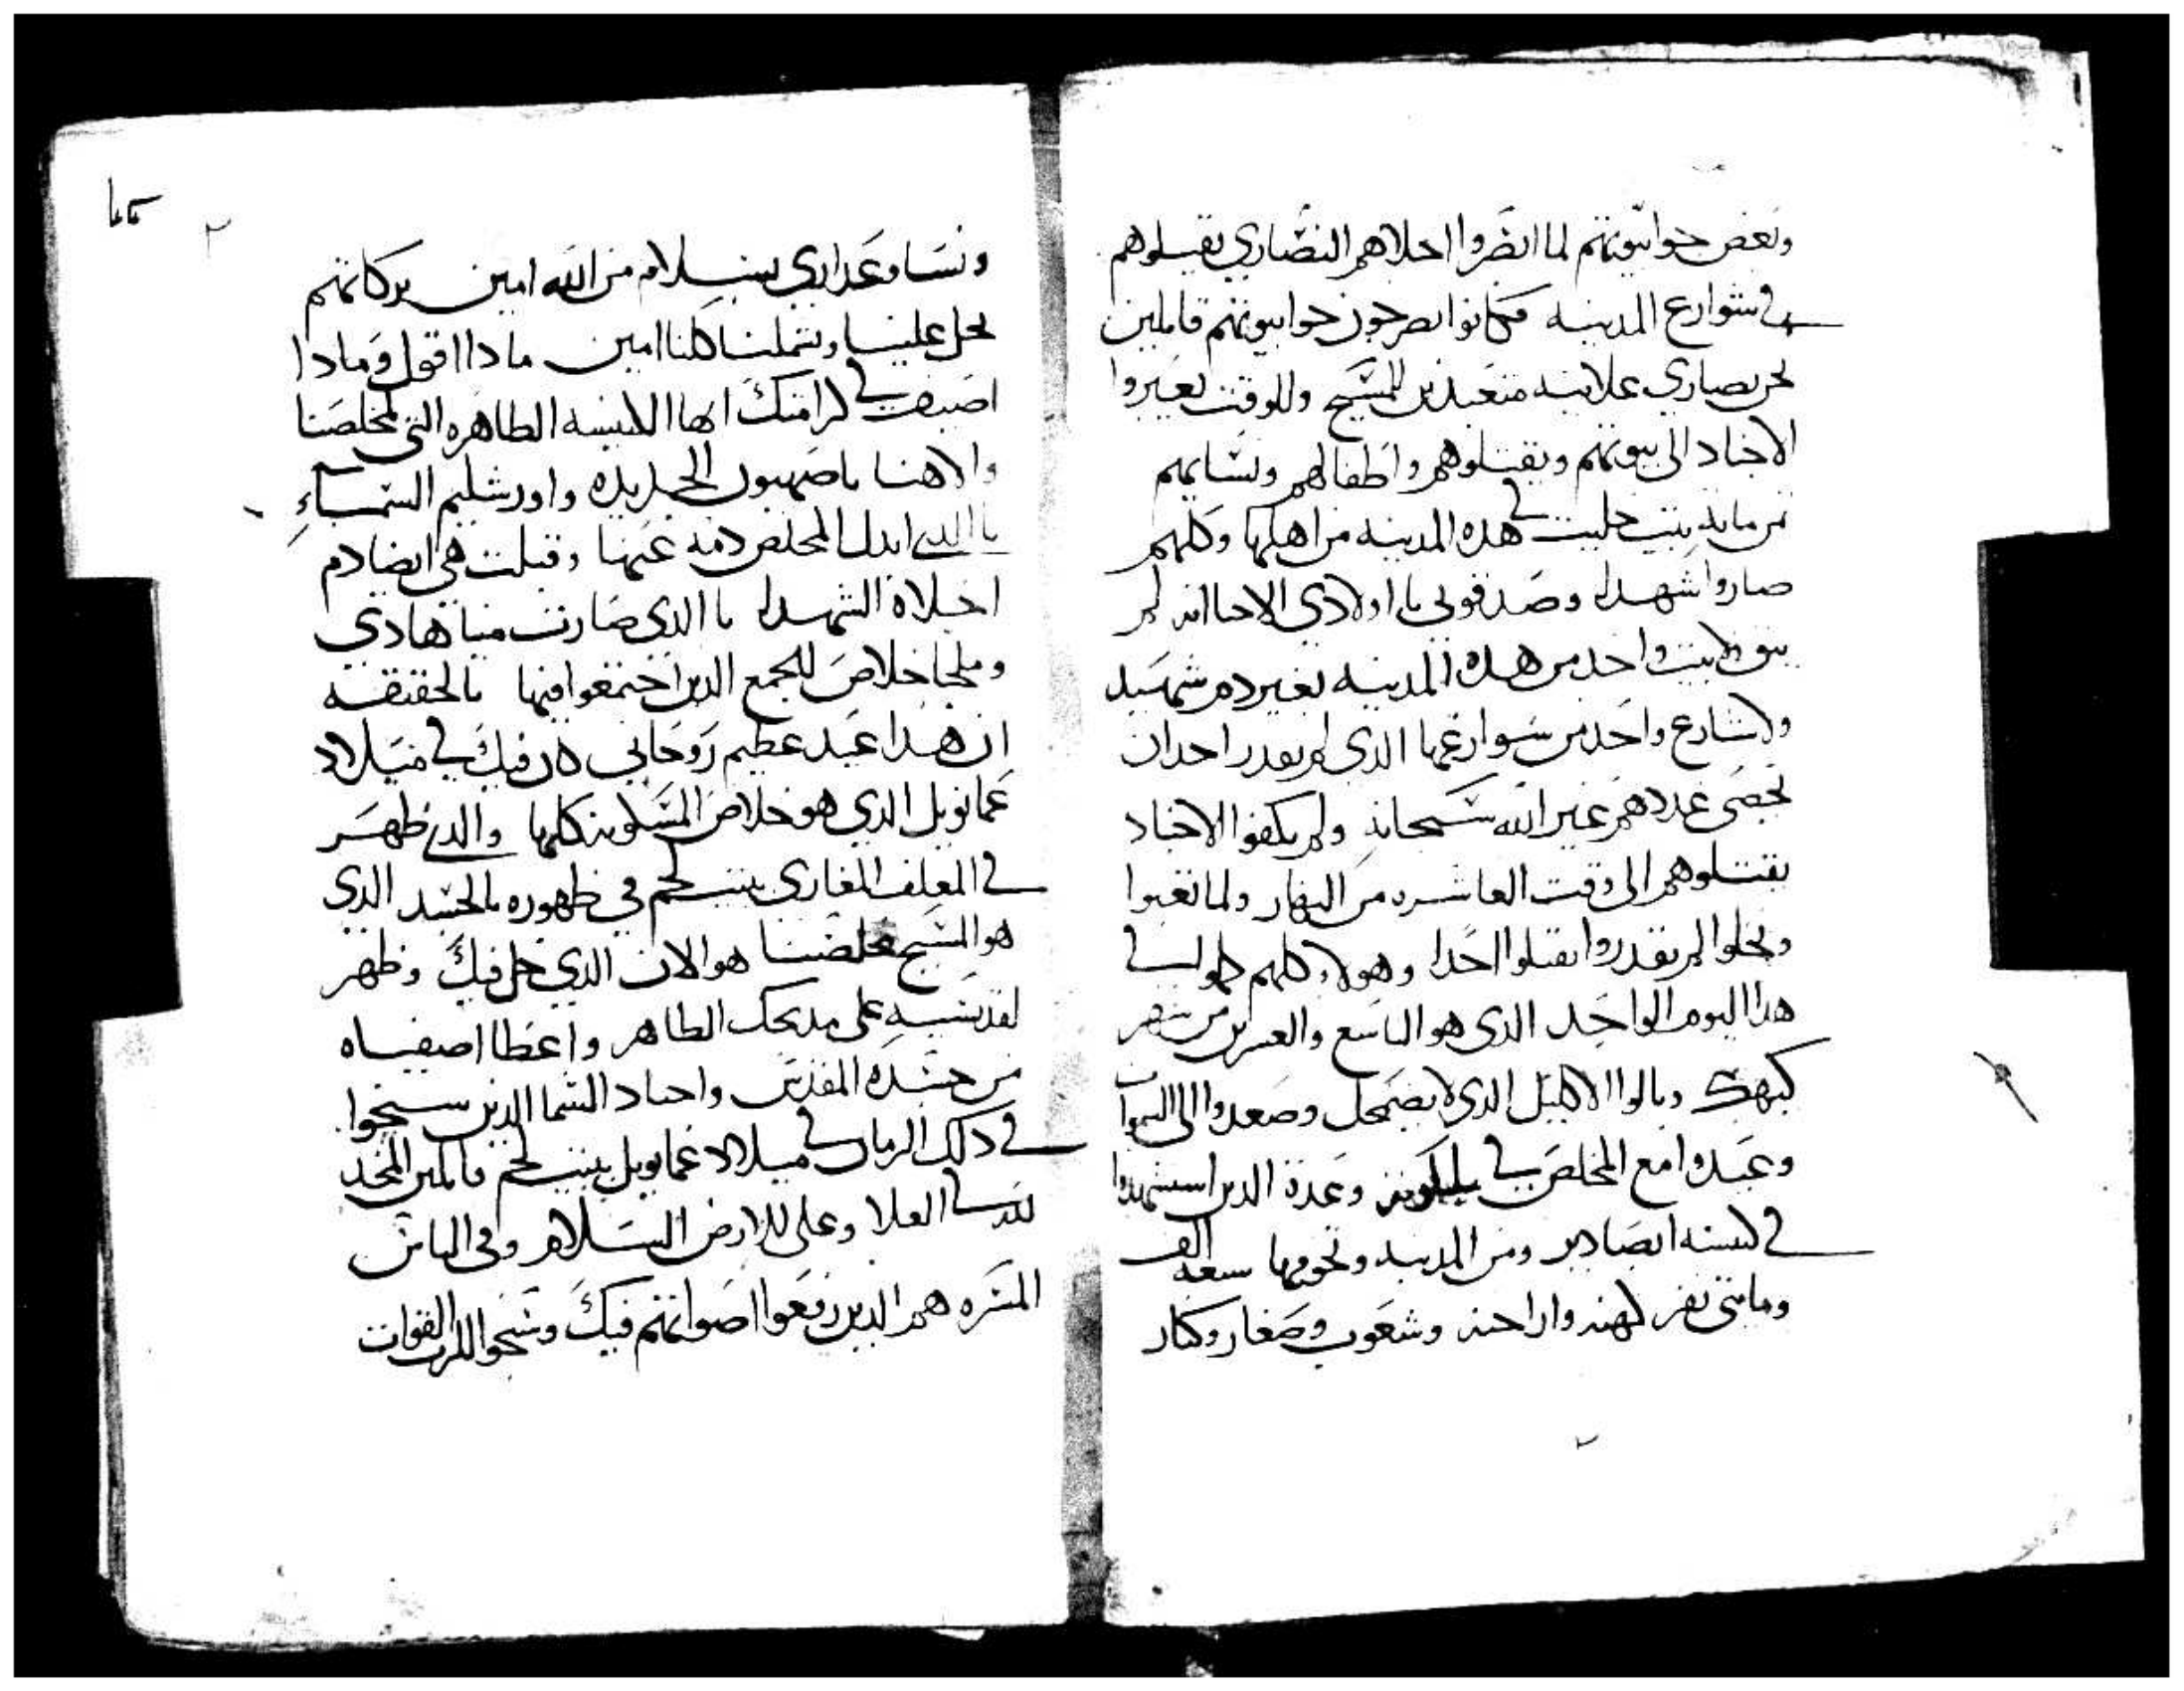 وبعض حوابيونهم لما انضروا اخلاهم النصاري يقتلوهم
في شوارع المدينه فكانوا يصرخون حوابيونهم قايلين
نحن نصاري علانيه متعبدين للمسيح وللوقت يعبروا
الاجناد الي بيوتهم ويقتلوهم واطفالهم ونسايهم
هذه المدينه من اهلها وكلهم
صاروا شهدا وصدقوني يا اولادي الاحبا انه لم
يبق ولا بيت واحد من هذه المدينه بغير دم شهيد
ولا شارع واحد من شوارعها الذي لم يقدر احد ان
يحصي عددهم غير الله سبحانه ولم يكفوا الاجناد
يقتلوهم الي وقت العاشره من النهار ولما تعبوا
لم يقدروا يقتلوا احدا وهولاء كلهم كملوا في
هذا اليوم الواحد الذي هو التاسع والعشرين من شهر
كيهك ونالوا الاكليل الذي لا يضمحل وصعدوا الي السموات
وعيدوا مع المخلص في ملكوته وعدة الذين استشهدوا
في كنيسه ابصاديا ومن المدينه وتخومها سبعه الف
ومايتي نفر كهنه واراخنه وشعوب وصغار وكبار
ونسا وعداري بسلام من الله امين بركاتهم
تحل علينا وتشملنا كلنا امين ماذا اقول وماذا
اصف في كرامتك ايها الكنيسه الطاهره التي لمخلصنا
والاهنا يا صهيون الجديده واورشليم السماء
يا الذي ابدل المخلص دمه عنها وقبلت هي ايضا دم
اجلاة الشهدا يا الذي صارت مينا هادي
وملجا خلاص للجمع الذين اجتمعوا فيها بالحقيقه
ان هذا عيد عظيم روحاني كان فيك في ميلاد
عمانويل الذي هو خلاص المسكونه كلها والذي ظهر
في المعلف المغاري ببيت لحم في ظهوره بالجسد الذي
هو المسيح مخلصنا هو الان الذي حل فيك وظهر
لقديسيه علي مذبحك الطاهر واعطا اصفياه
من جسده المقدس واجناد السما الذين سبحوا
في ذلك الزمان في ميلاد عمانويل ببيت لحم قايلين المجد
لله في العلا وعلي الارض السلام وفي الناس
المسره هم الذين رفعوا اصواتهم فيك وسبحوا للرب القوات